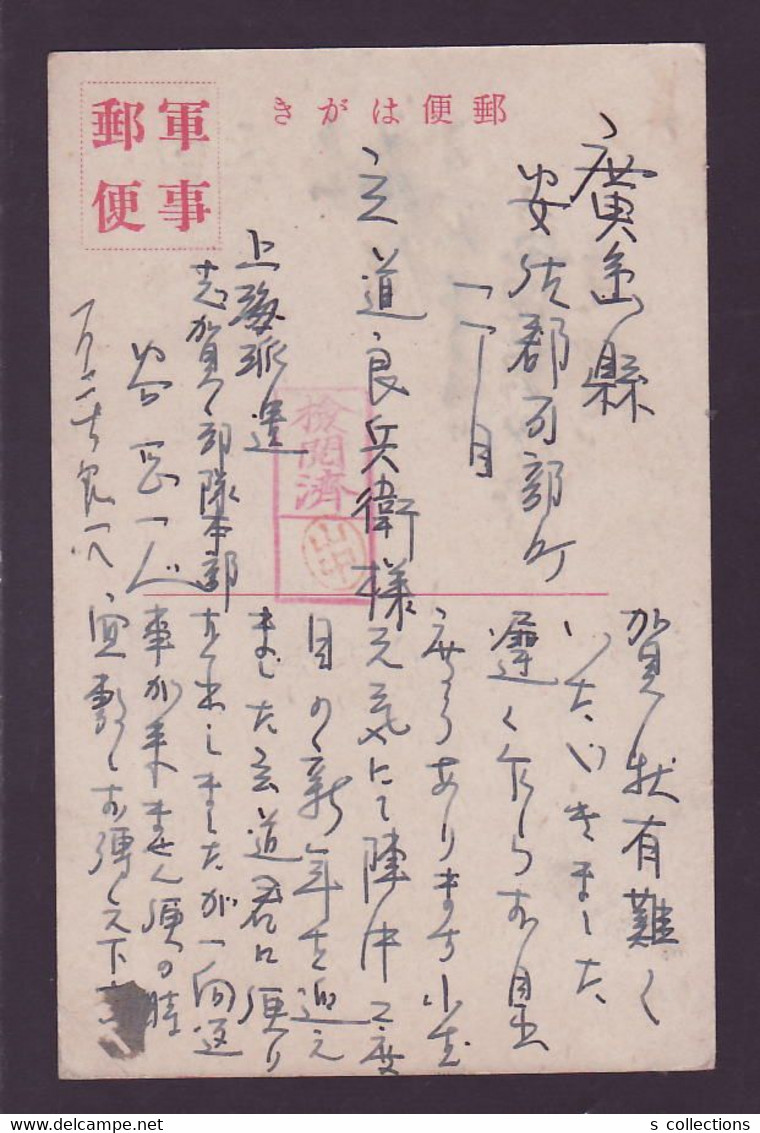 郵便はがき
軍事
郵便
廣島縣
安佐郡可部町
一丁目
立道良兵衛様
検閲済
山中
上海派遣
志賀部隊本部
一月二十九日
賀状有難く
いたゞきました
遅く乍らお目出
度うあります
元気にて陣中二度
目の新年を迎え
ました 立道君に便り
お出ししましたが一向返
事が来ません 便の時
宜敷くお傳え下さい
s collections
www.delcampe.net